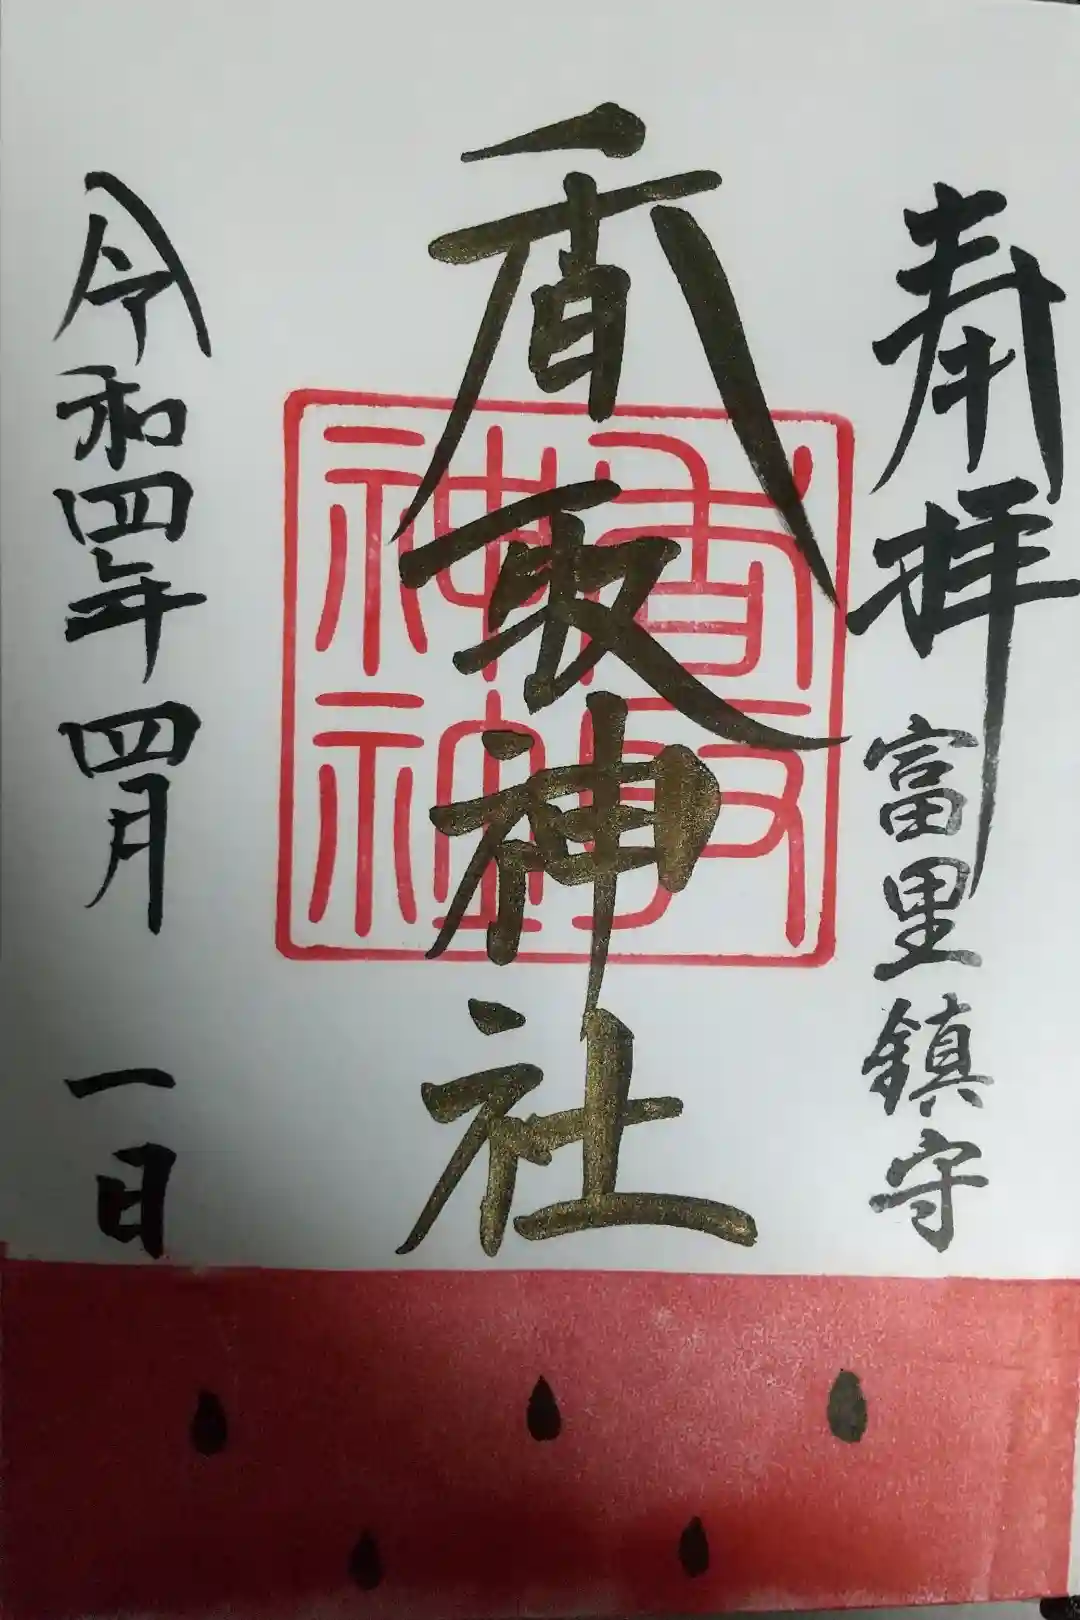 奉拝 富里鎮守
香取神社
香取神社神社
令和四年 四月 一日